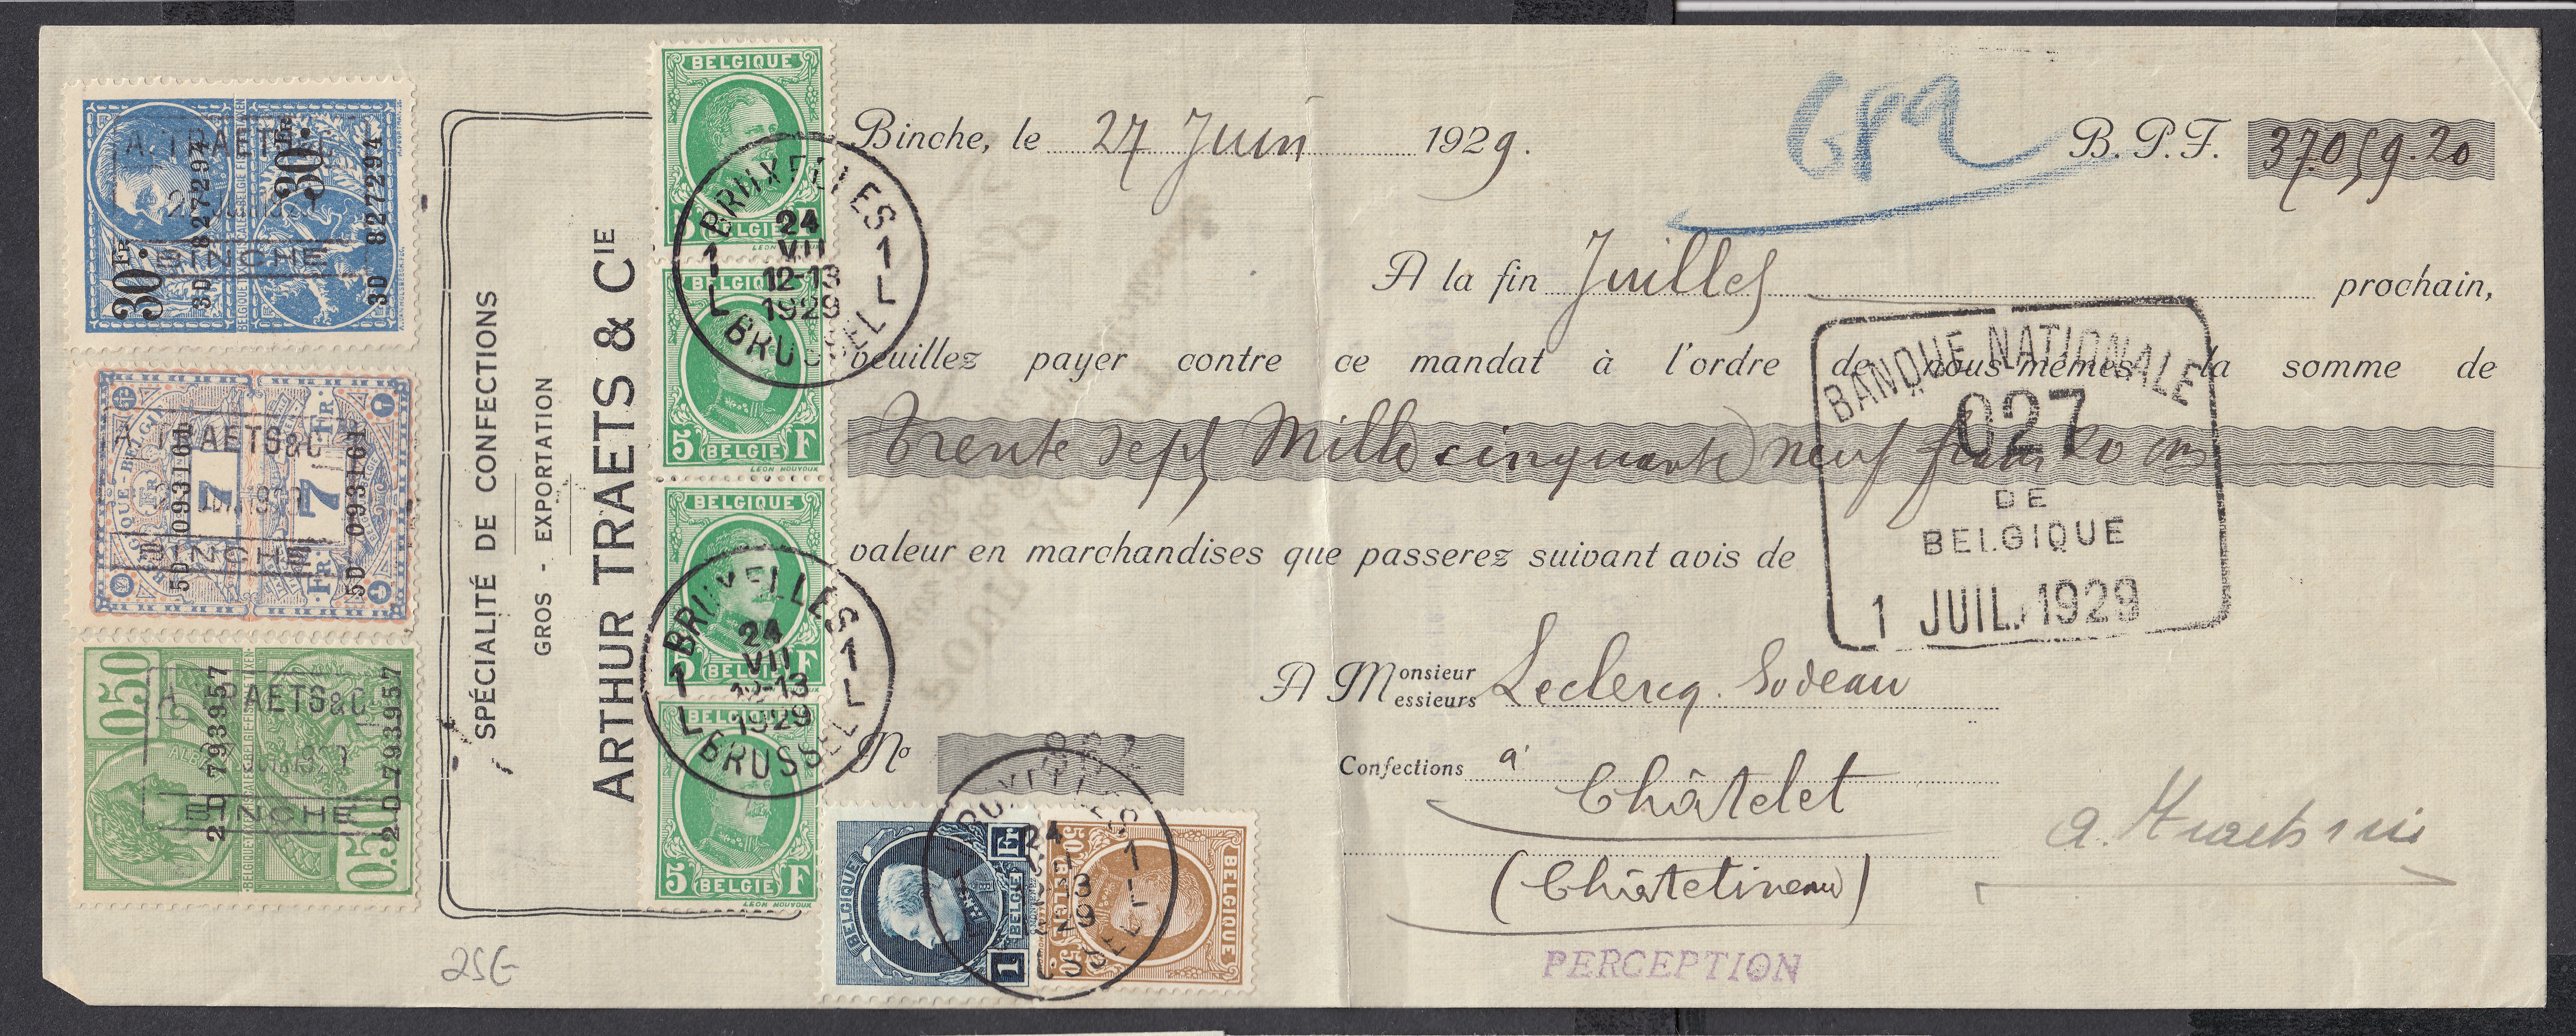 Binche, le 27 Juin 1929.
B. P. F. 37.059.20
A la fin Juillet prochain,
veuillez payer contre ce mandat à l'ordre de nous-mêmes la somme de
Trente sept Mille cinquante neuf francs 20 cms
valeur en marchandises que passerez suivant avis de
A Monsieur
Messieurs
Leclercq. Sodeau
Confections à Châtelet
(Châtelineau)
PERCEPTION
No
BANQUE NATIONALE
027
DE
BELGIQUE
1 JUIL. 1929
SPÉCIALITÉ DE CONFECTIONS
GROS - EXPORTATION
ARTHUR TRAETS & CIE
A. TRAETS & C
BINCHE
30 FR
30 FR
3D 827294
3D 827294
A. TRAETS&C
BINCHE
BELGIQUE-BELGIË
7 FR
7 FR
5D 093161
5D 093161
A. TRAETS&C
BINCHE
0.50
0.50
2D 793957
2D 793957
BELGIQUE
5 BELGIE F
LEON NOUVOUX
BELGIQUE
5 BELGIE F
LEON NOUVOUX
BELGIQUE
5 BELGIE F
BELGIQUE
5 BELGIE F
LEON NOUVOUX
BRUXELLES
1 1
L L
24
VII
12-13
1929
BRUSSEL
BRUXELLES
1 1
L L
24
VII
12-13
1929
BRUSSEL
BELGIQUE
1 Fr
BELGIË
BELGIQUE
50 50
BELGIË